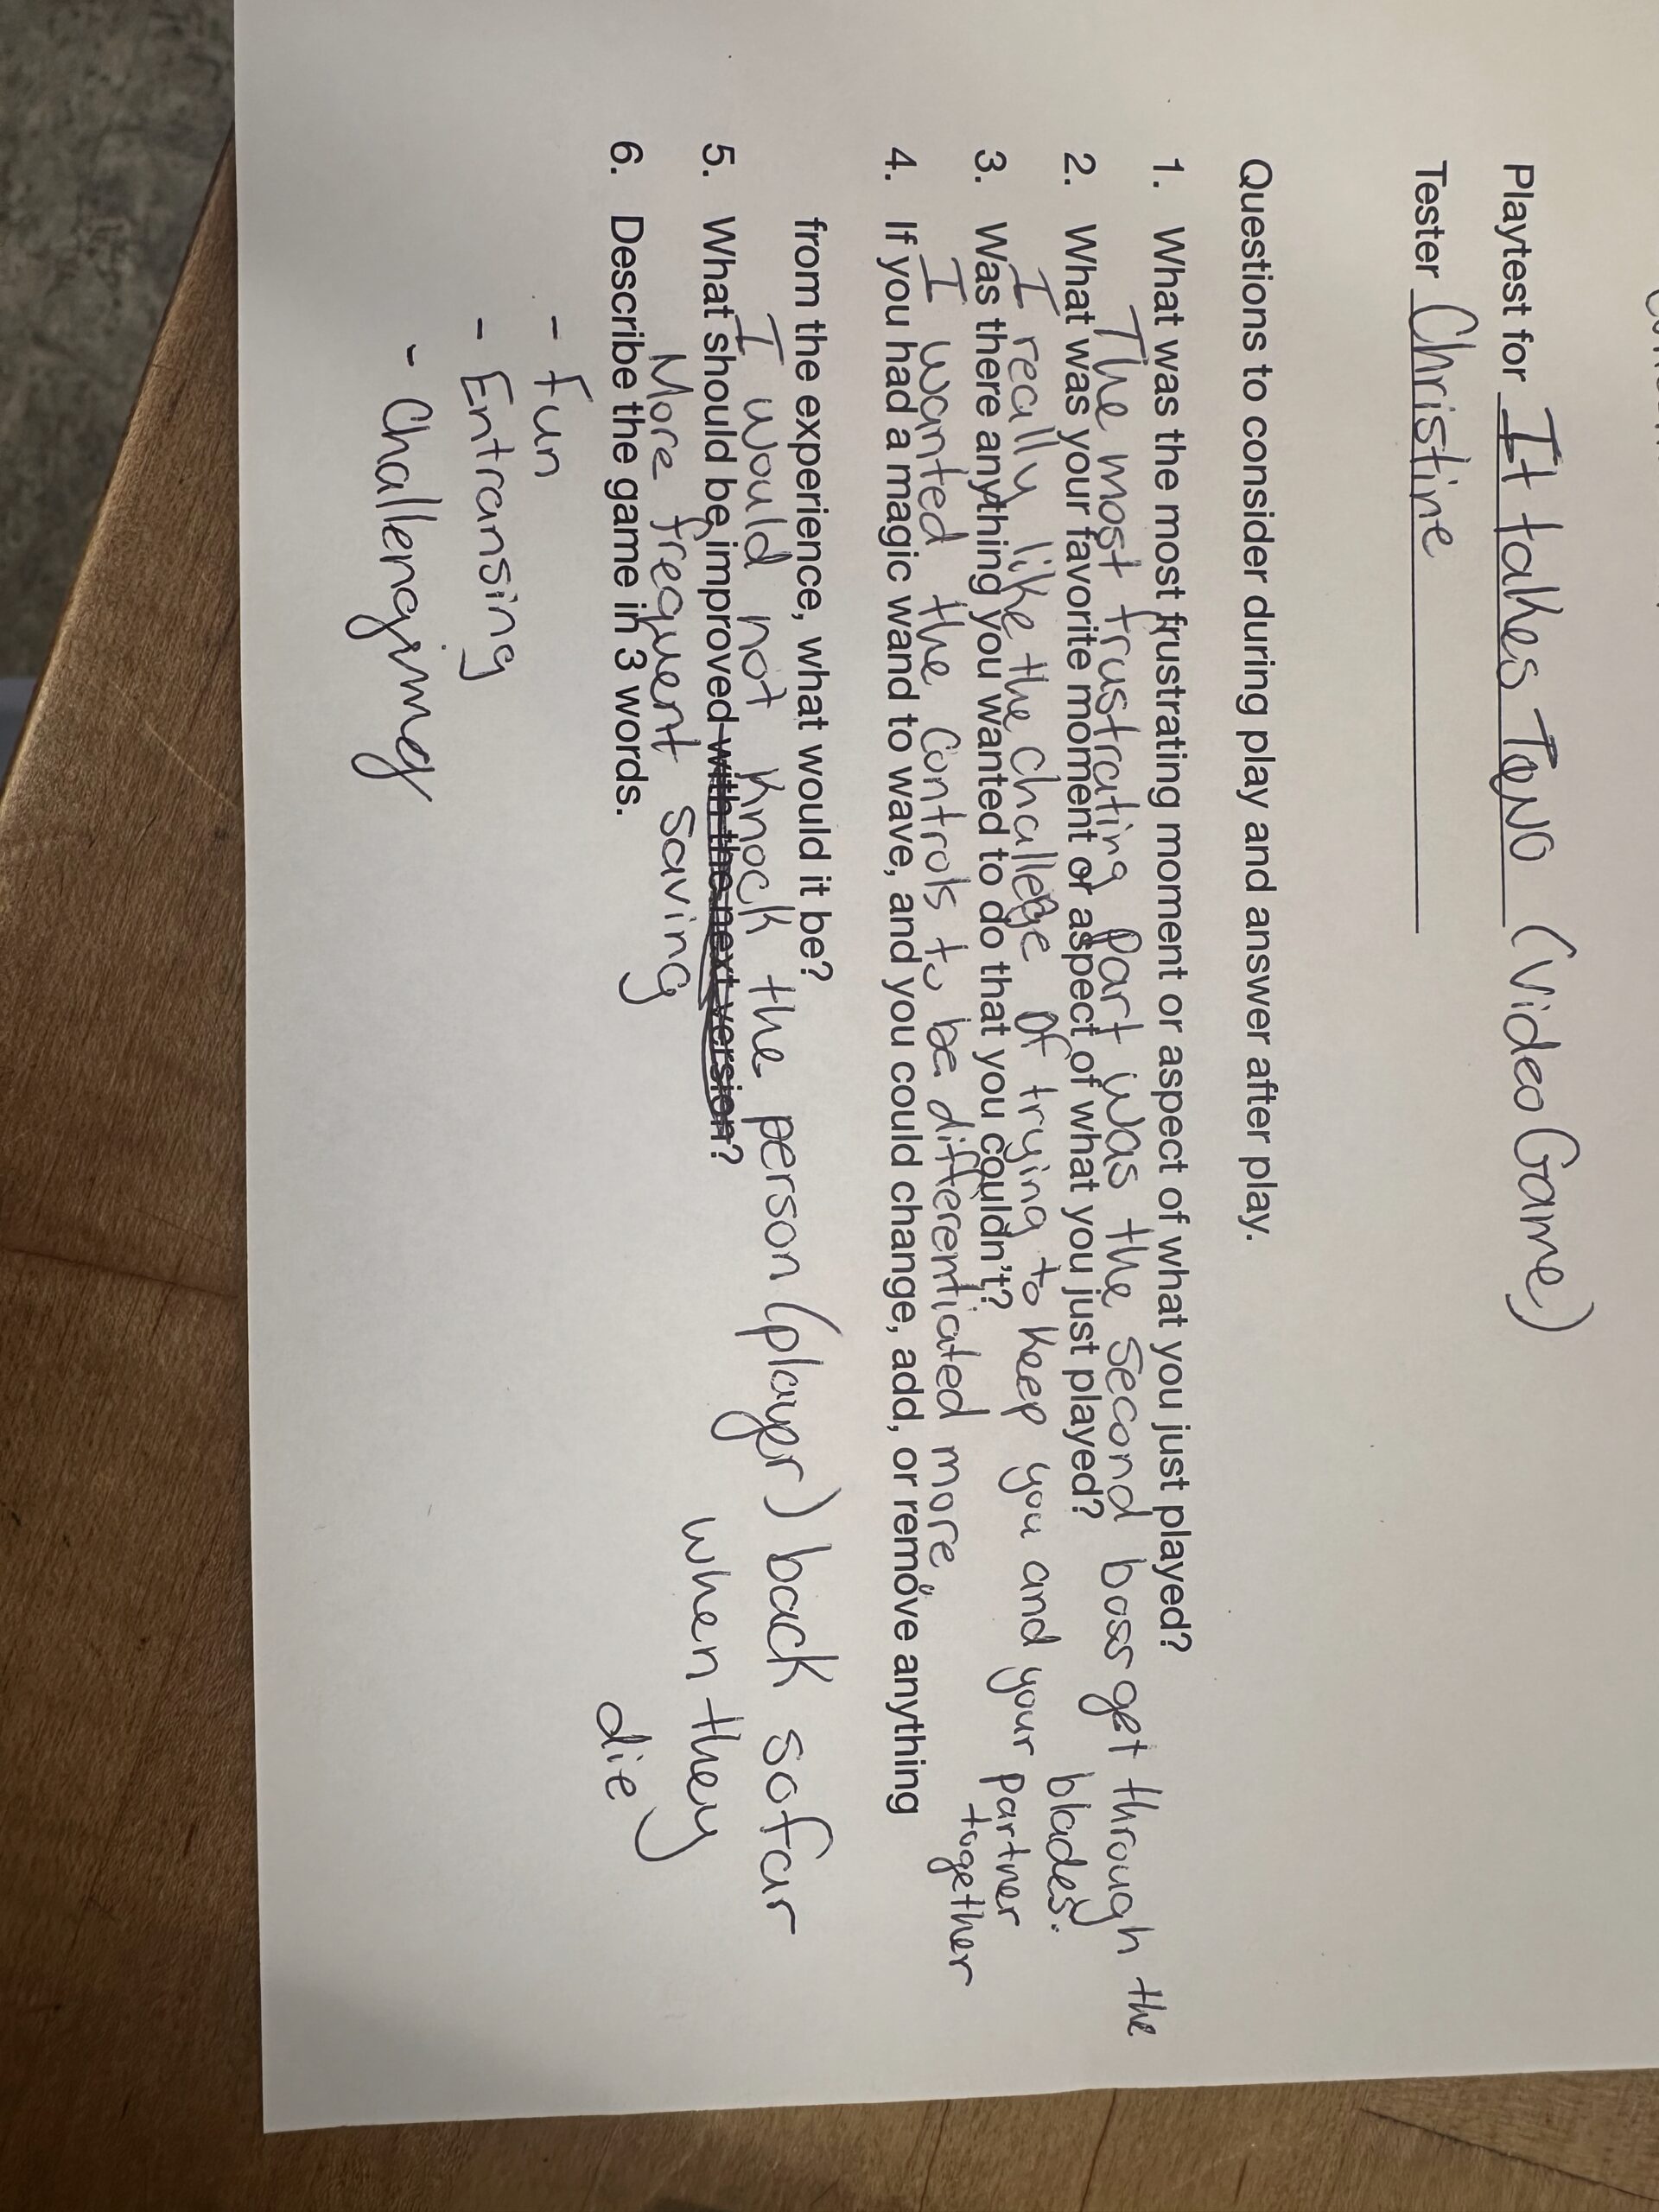 Playtest for It takes Two (Video Game)
Tester Christine
Questions to consider during play and answer after play.
1. What was the most frustrating moment or aspect of what you just played?
The most frustrating part was the second boss get through the
blades.
2. What was your favorite moment or aspect of what you just played?
I really like the challenge of trying to keep you and your partner
together
3. Was there anything you wanted to do that you couldn't?
I wanted the controls to be differentiated more.
4. If you had a magic wand to wave, and you could change, add, or remove anything
from the experience, what would it be?
I would not knock the person (player) back so far
when they
die
5. What should be improved with the next version?
More frequent saving
6. Describe the game in 3 words.
- Fun
- Entransing
- Challenging